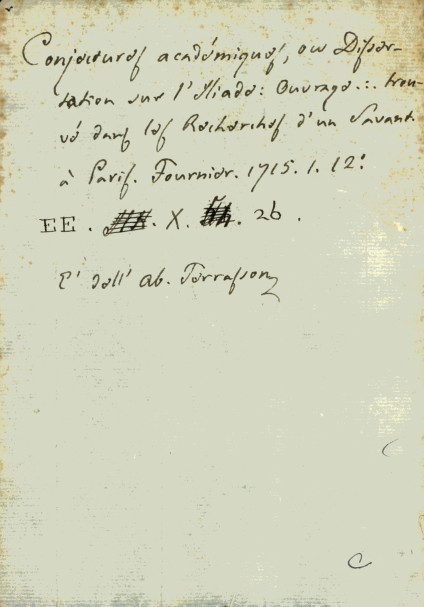 Conjectures académiques, ou Disser-
tation sur l'Iliade: Ouvrage .:. trou-
vé dans les Recherches d'un Savant
à Paris. Fournier. 1715. 1. 12°
EE . X . 26 .
E' dell' Ab. Terrasson
C